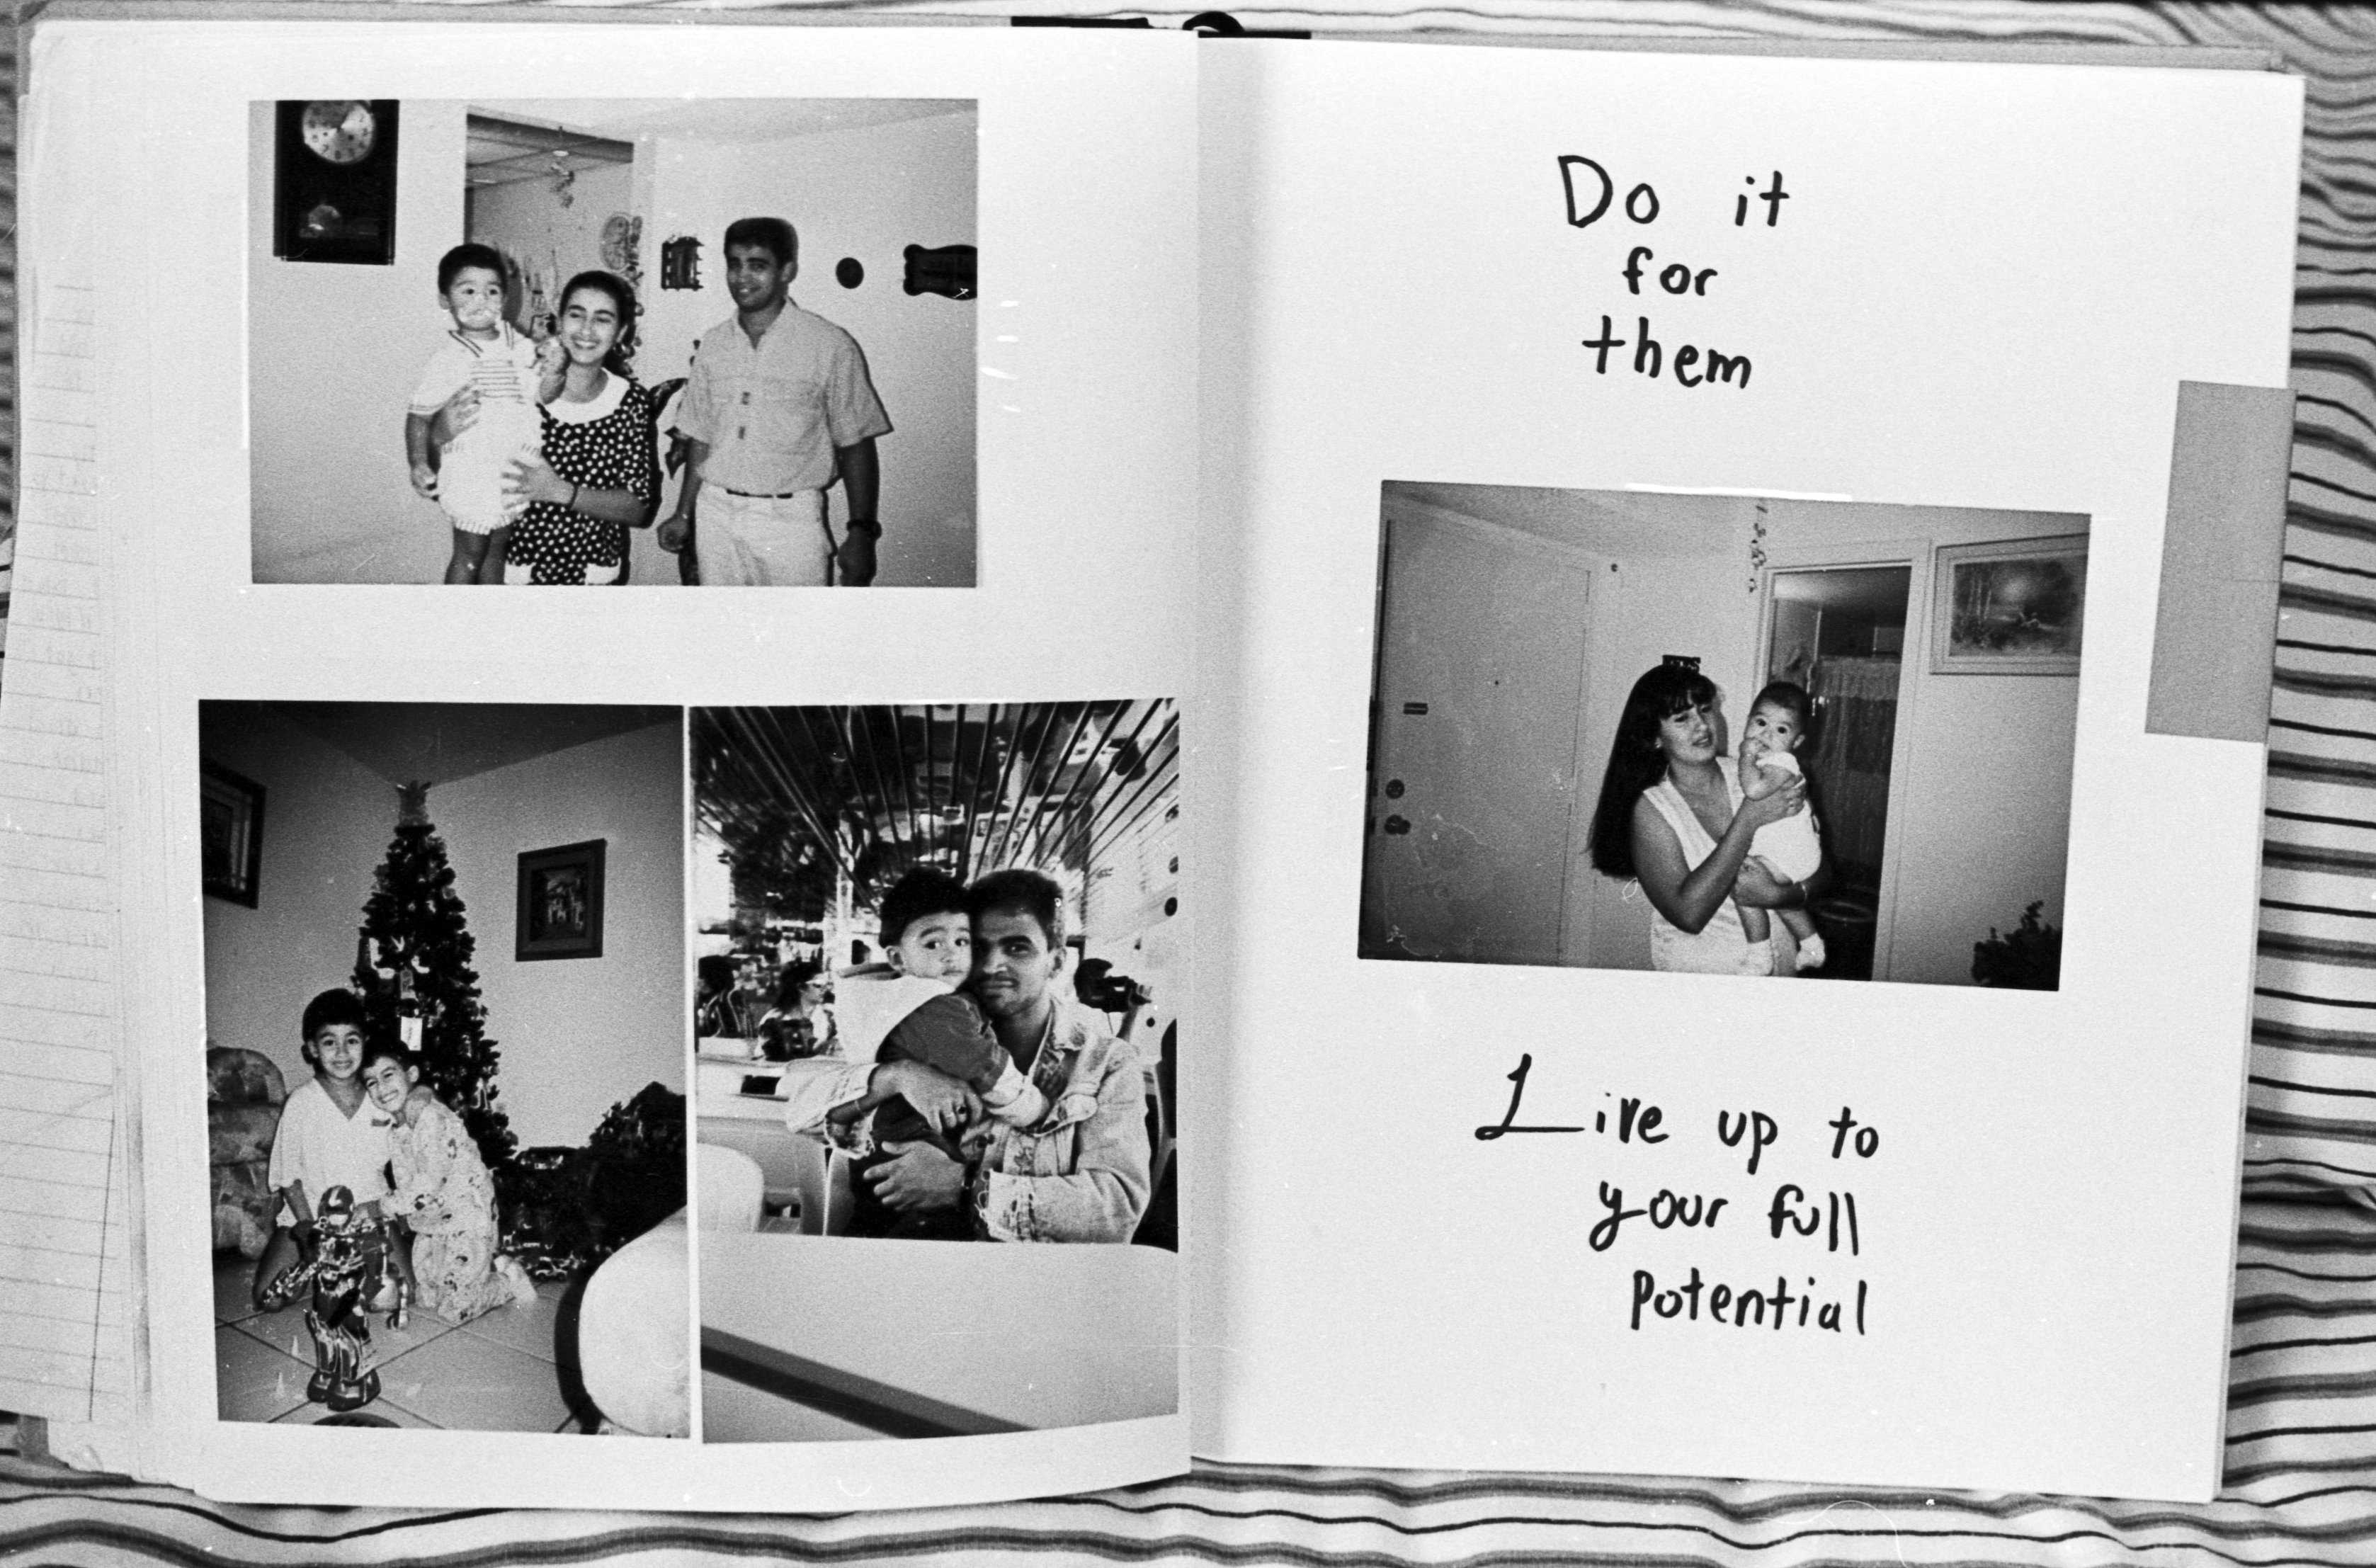 Do it
for
them
Live up to
your full
potential